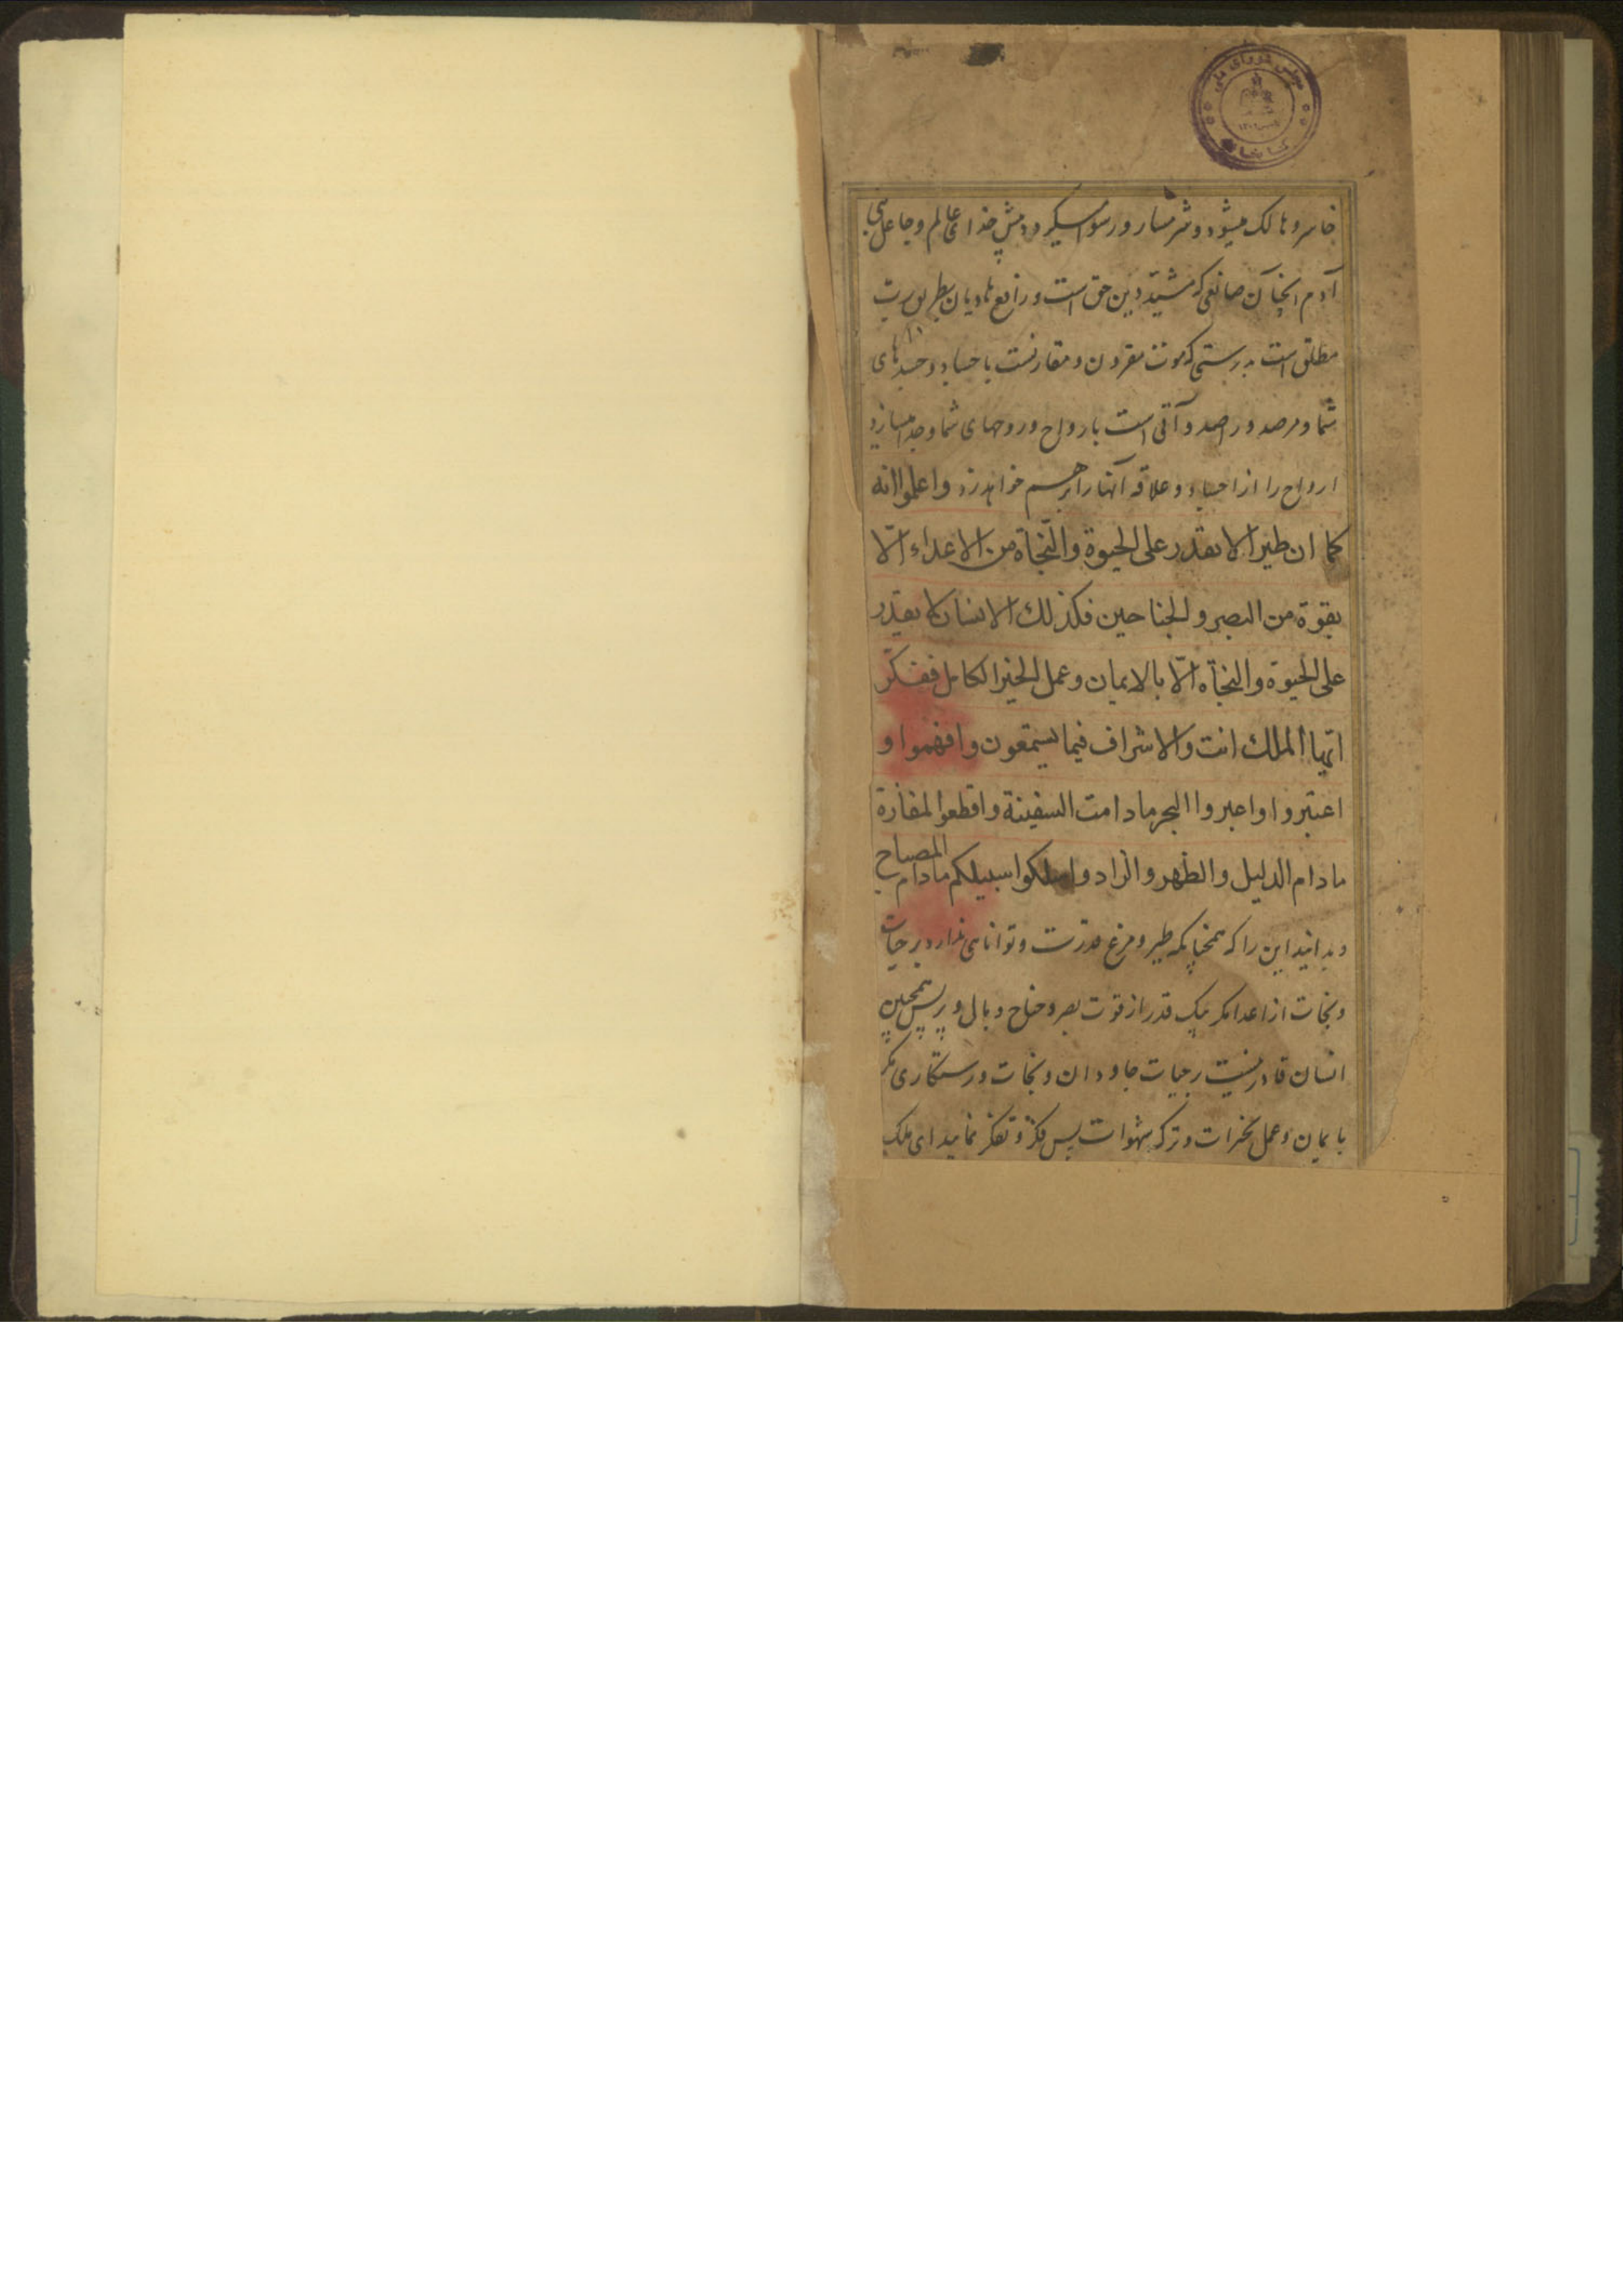 مجلس شورای ملی
کتابخانه
خاسر و هالک میشود و شرمسار و رسوا میگردد پیش خدای عالم و جاعل بنی
آدم انچنان صانعی که مشید دین حق است و رافع هادیان بطریق
مطلق است بدرستی که موت مقرون و مقارنست باجساد و جسدهای
شما و مرصد و راصد و آتی است بارواح و روحهای شما و جدا میسازد
ارواح را از اجساد و علاقه آنها را بر هم خواهد زد واعلموا انه
کما ان طیرا لا یقدر علی الحیوة والنجاة من الاعداء الّا
بقوة من البصر والجناحین فکذلك الانسان لا یقدر
علی الحیوة والنجاة الّا بالایمان وعمل الخیر الکامل ففکّر
ایّها الملك انت والاشراف فیما یستمعون وافهموا و
اعتبروا واعبروا البحر مادامت السفینة واقطعوا المفازة
مادام الدلیل والظهر والزاد واسلکوا سبیلکم مادام المصباح
و بدانید این را که همچنانکه طیر و مرغ قدرت و توانائی ندارد بر حیات
و نجات از اعدا مگر بیک قدر از قوت بصر و جناح و بال و پر پس همچنین
انسان قادر نیست بر حیات جاودان و نجات و رستکاری مگر
بایمان و عمل بخیرات و ترک شهوات پس فکر و تفکر نمایید ای ملک